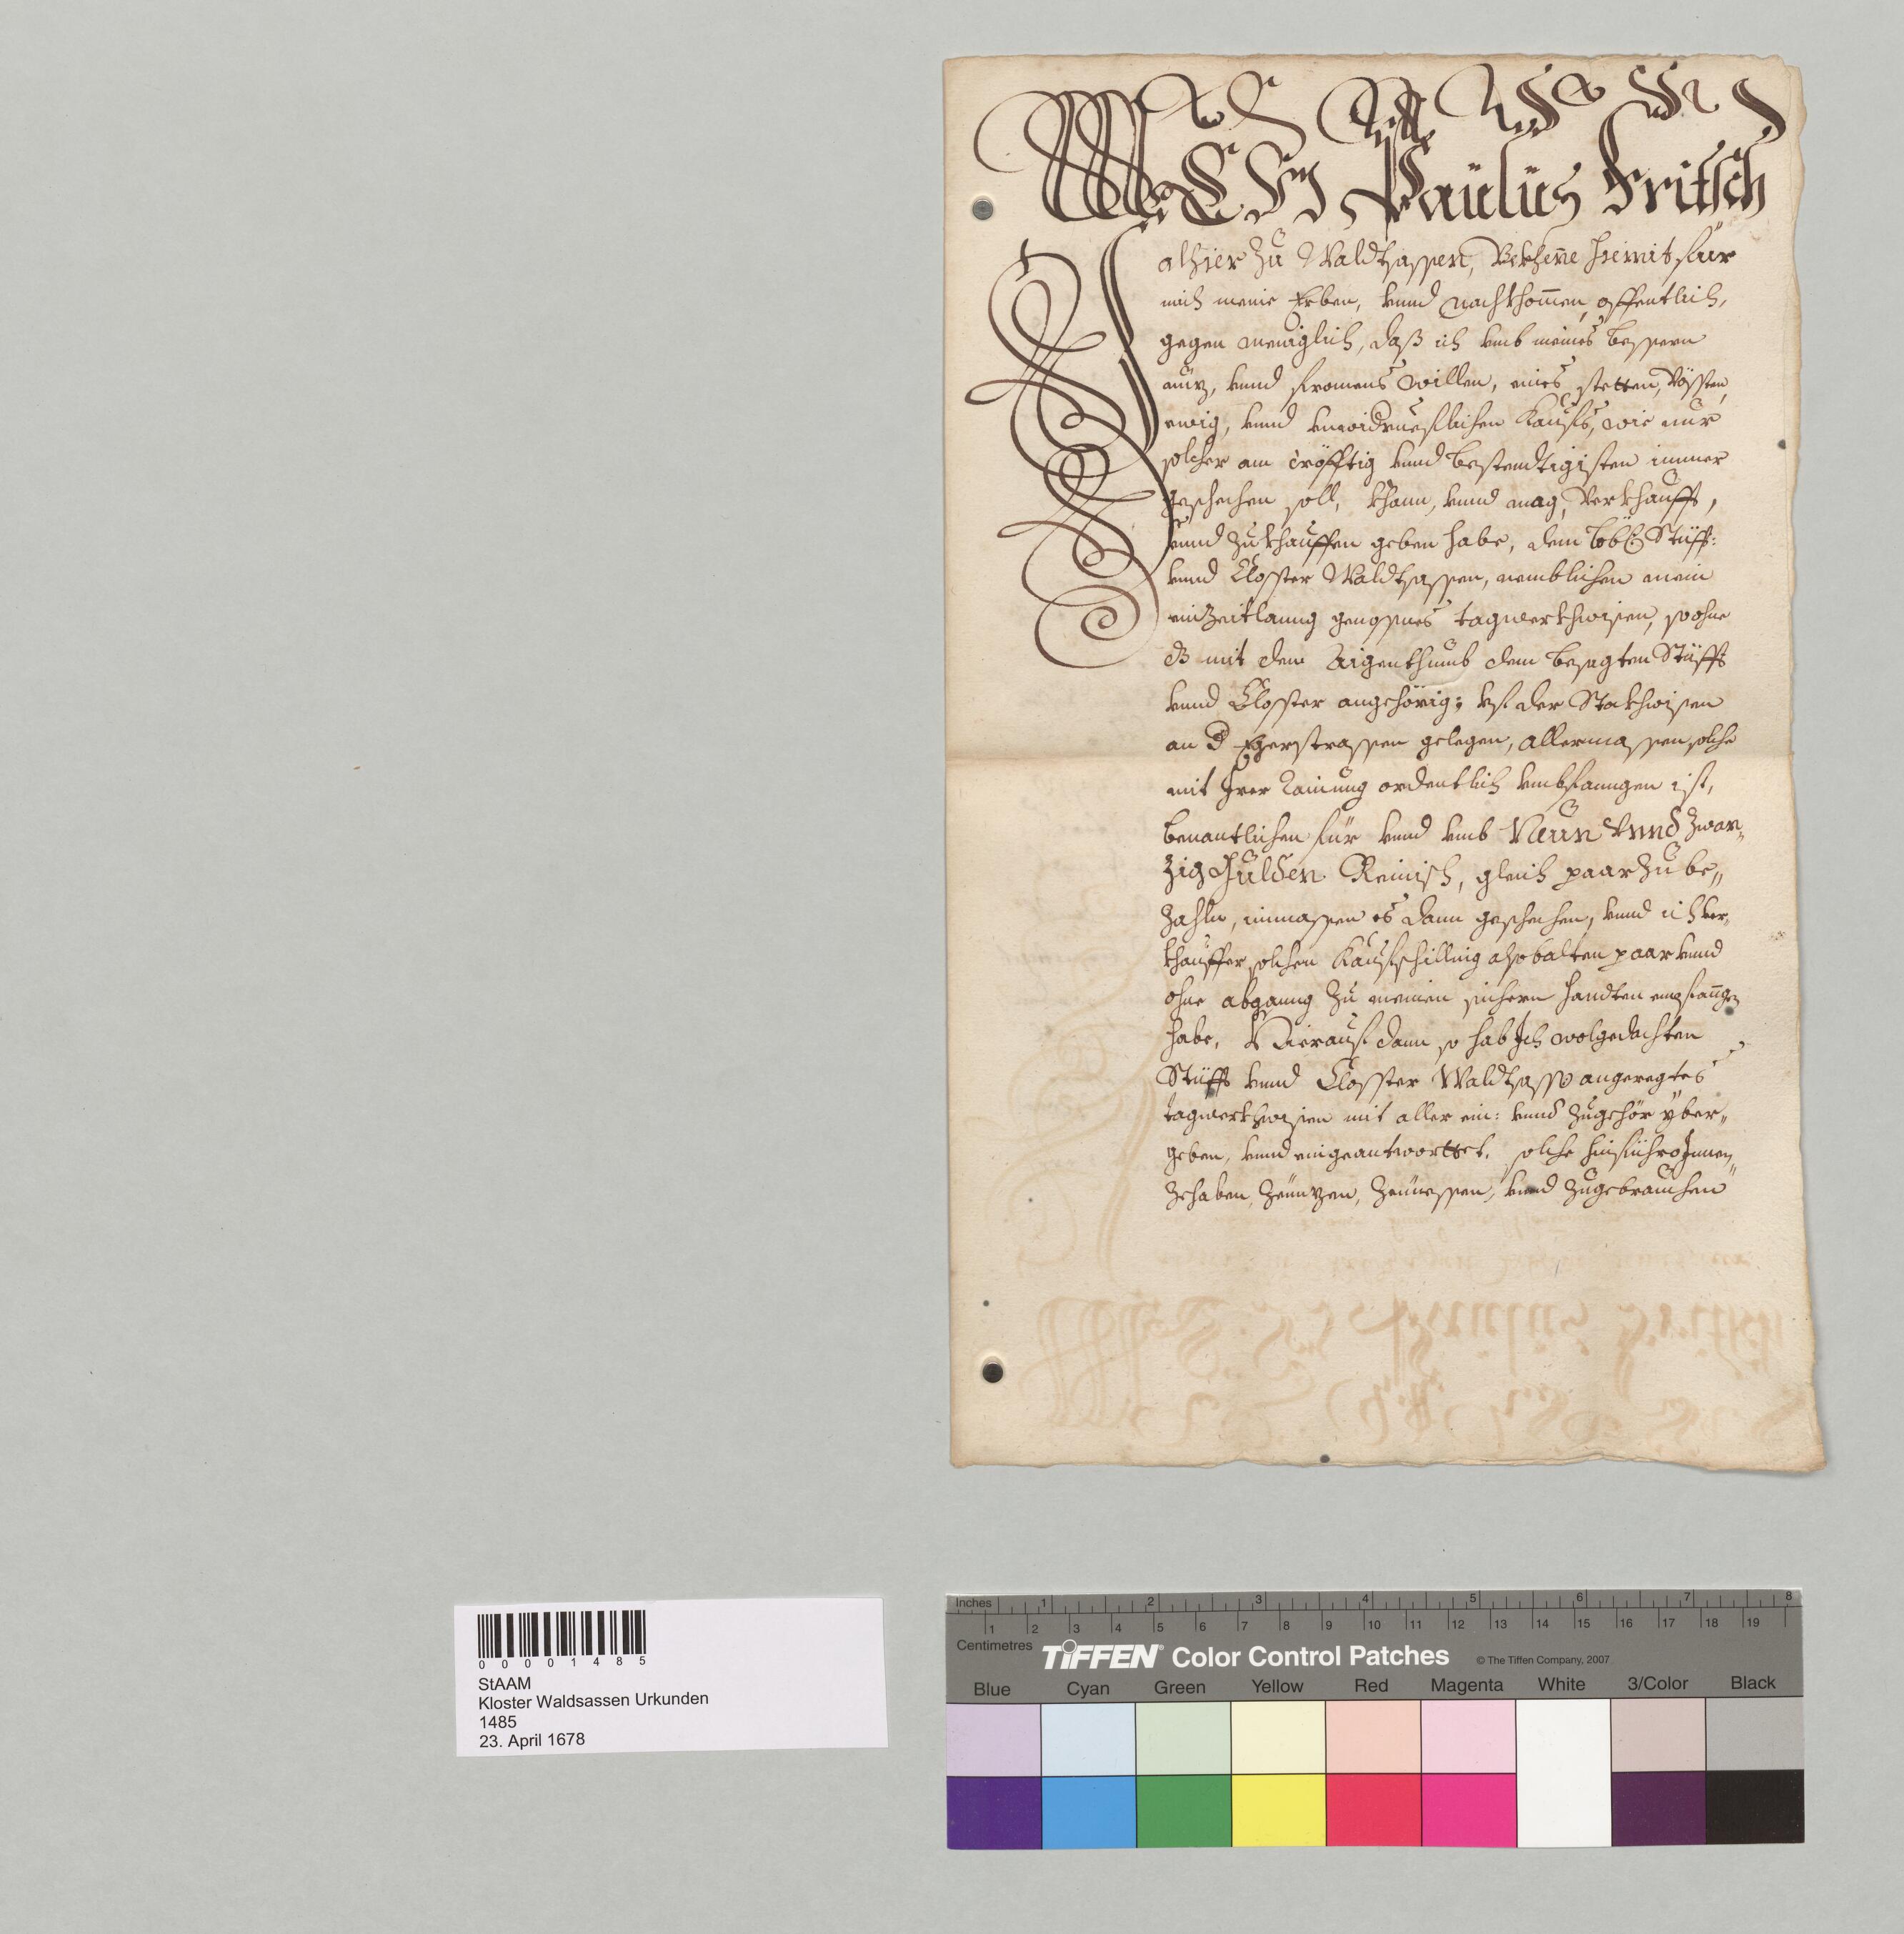 Paulus Fritsch
alhier zu Waldtsassen, Bekhene hiemit für
mich meine Erben, vnnd nachkhom̄en, offentlich,
gegen meniglich, daß ich vmb meines bessern
nuz, vnnd fromens willen, eines stetten, vössten,
ewig, vnnd vnwidrueflichen Kaufs, wie nur
solcher am cröfftig vnnd bestendtigisten immer
geschechen soll, khann, vnnd mag, verkhaufft,
vnnd zukhauffen geben habe, dem löbl: Stüfft:
vnnd Closster Waldtsassen, nemblichen mein
ein Zeitlanng genossnes tagwerkhwisen, so ohne
dz mit dem Aigenthumb dem besagten Stüfft
vnnd Closster angehörig, vf der Stokhwisen
an d Egerstrassen gelegen, allermassen solche
mit Irer Rainung ordentlich vmbfanngen ist,
benantlichen für vnnd vmb Neun vnnd zwan,,
zig Gulden Reinisch, gleich paar zu be,,
zahln, inmassen es dann geschechen, vnnd ich ver,,
khauffer solchen Kaufschilling alsobalten paar vnnd
ohne abganng zu meinen sichern handten empfanngen
habe, Hierauf dann so hab Ich wolgedachten
Stüfft vnnd Closster Waldtsassen angeregtes
tagwerkhwisen mit aller ein: vnnd zugehör yber,,
geben, vnnd eingeantworttet, solche hinführo Innen,,
zehaben, zenuzen, zeniessen, vnnd zugebrauchen
00001485
StAAM
Kloster Waldsassen Urkunden
1485
23. April 1678
Inches 1 2 3 4 5 6 7 8
1 2 3 4 5 6 7 8 9 10 11 12 13 14 15 16 17 18 19
Centimetres
TIFFEN® Color Control Patches © The Tiffen Company, 2007
Blue Cyan Green Yellow Red Magenta White 3/Color Black